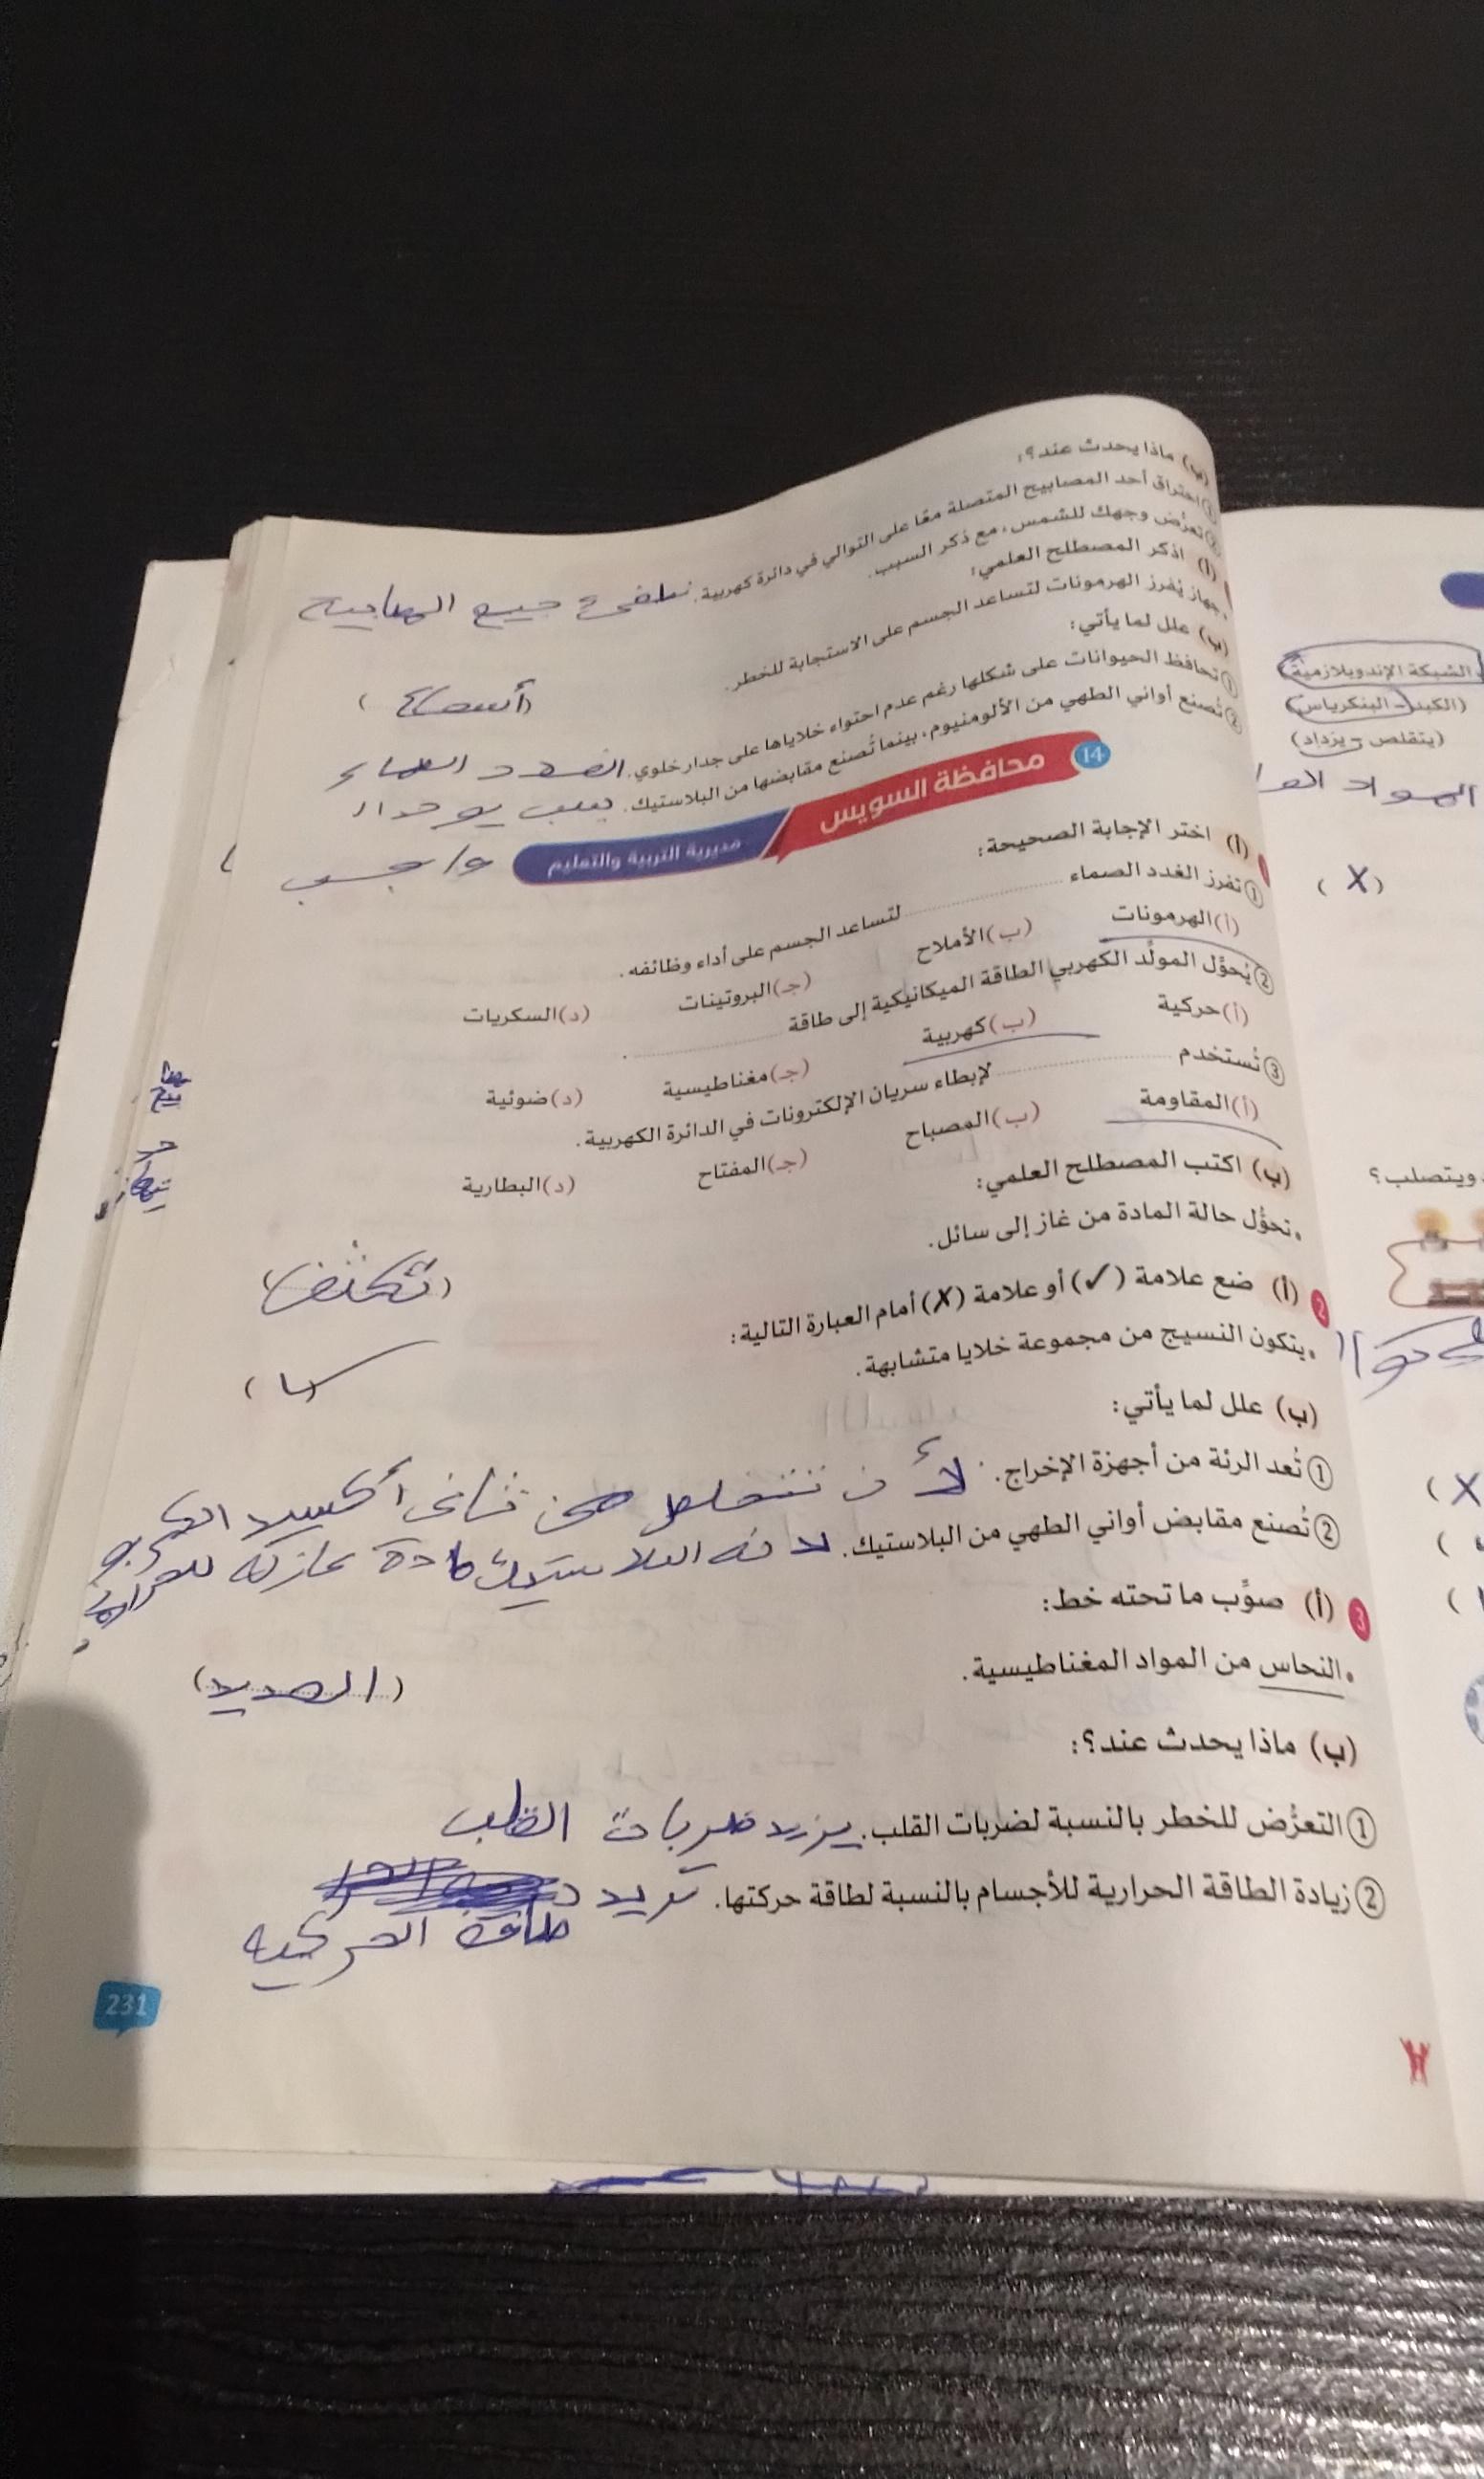 (ب) ماذا يحدث عند؟:
① احتراق أحد المصابيح المتصلة معًا على التوالي في دائرة كهربية. جميع
② تعرُّض وجهك للشمس، مع ذكر السبب.
(أ) اذكر المصطلح العلمي:
• جهاز يُفرز الهرمونات لتساعد الجسم على الاستجابة للخطر.
(ب) علل لما يأتي:
① تحافظ الحيوانات على شكلها رغم عدم احتواء خلاياها على جدار خلوي.
② تُصنع أواني الطهي من الألومنيوم، بينما تُصنع مقابضها من البلاستيك.
14 محافظة السويس
مديرية التربية والتعليم
(أ) اختر الإجابة الصحيحة:
① تفرز الغدد الصماء ........ لتساعد الجسم على أداء وظائفه.
(أ) الهرمونات (ب) الأملاح (جـ) البروتينات (د) السكريات
② يُحوَّل المولِّد الكهربي الطاقة الميكانيكية إلى طاقة ........ .
(أ) حركية (ب) كهربية (جـ) مغناطيسية (د) ضوئية
③ تُستخدم ........ لإبطاء سريان الإلكترونات في الدائرة الكهربية.
(أ) المقاومة (ب) المصباح (جـ) المفتاح (د) البطارية
(ب) اكتب المصطلح العلمي:
• تحوُّل حالة المادة من غاز إلى سائل.
(تكثف)
2 (أ) ضع علامة (✓) أو علامة (✗) أمام العبارة التالية:
• يتكون النسيج من مجموعة خلايا متشابهة.
(ب) علل لما يأتي:
① تُعد الرئة من أجهزة الإخراج. لأن تتخلص من ثاني أكسيد
② تُصنع مقابض أواني الطهي من البلاستيك. لانه البلاستيك مادة عازلة للحرارة
3 (أ) صوِّب ما تحته خط:
• النحاس من المواد المغناطيسية. (الحديد)
(ب) ماذا يحدث عند؟:
① التعرُّض للخطر بالنسبة لضربات القلب. يزيد ضربات القلب
② زيادة الطاقة الحرارية للأجسام بالنسبة لطاقة حركتها. تزيد
طاقة الحركية
231
الشبكة الإندوبلازمية)
(الكبد - البنكرياس)
(يتقلص - يزداد)
المواد
(X)
ويتصلب؟
(X